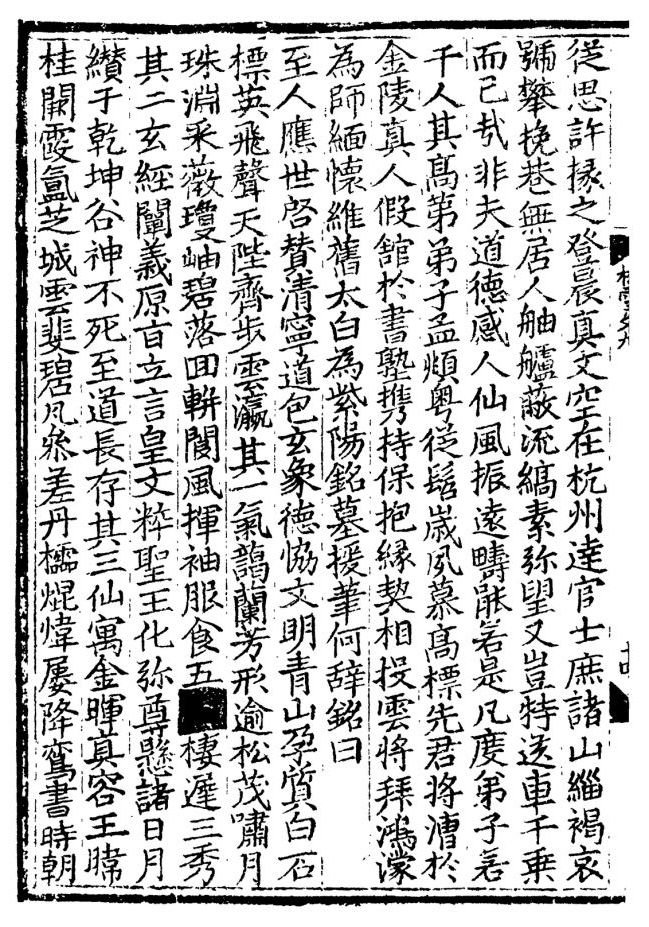 從思許掾之登晨真文空在杭州達官士庶諸山緇褐哀
號攀挽巷無居人舳艫蔽流縞素弥望又豈特送車千乗
而已㢤非夫道德感人仙風振遠疇能若是凡度弟子若
千人其髙第弟子孟頫粤従髫歲夙慕髙標先君將漕於
金陵真人假館於書塾携持保抱縁契相投雲將拜鴻濛
為師緬懷維舊太白為紫陽銘墓援筆何辞銘曰
至人應世啓賛清寧道包玄象德協文明青山孕質白石
標英飛聲天陛齊步雲瀛其一氣藹蘭芳形逾松茂嘯月
珠淵采薇瓊岫碧落回軿閬風揮袖服食五棲遲三秀
其二玄經闡義原盲立言皇文粹聖王化弥尊懸諸日月
纉于乾坤谷神不死至道長存其三仙寓金暉真容王暐
桂闕霞氲芝城雲斐碧凡叅差丹櫺焜煒屢降鸞書時朝
桂雪之九
十四